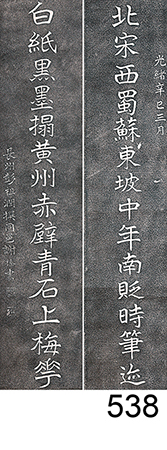 光緒辛巳三月
北宋西蜀蘇東坡中年南貶時筆迹
白紙黑墨搨黃州赤壁青石上梅花
538